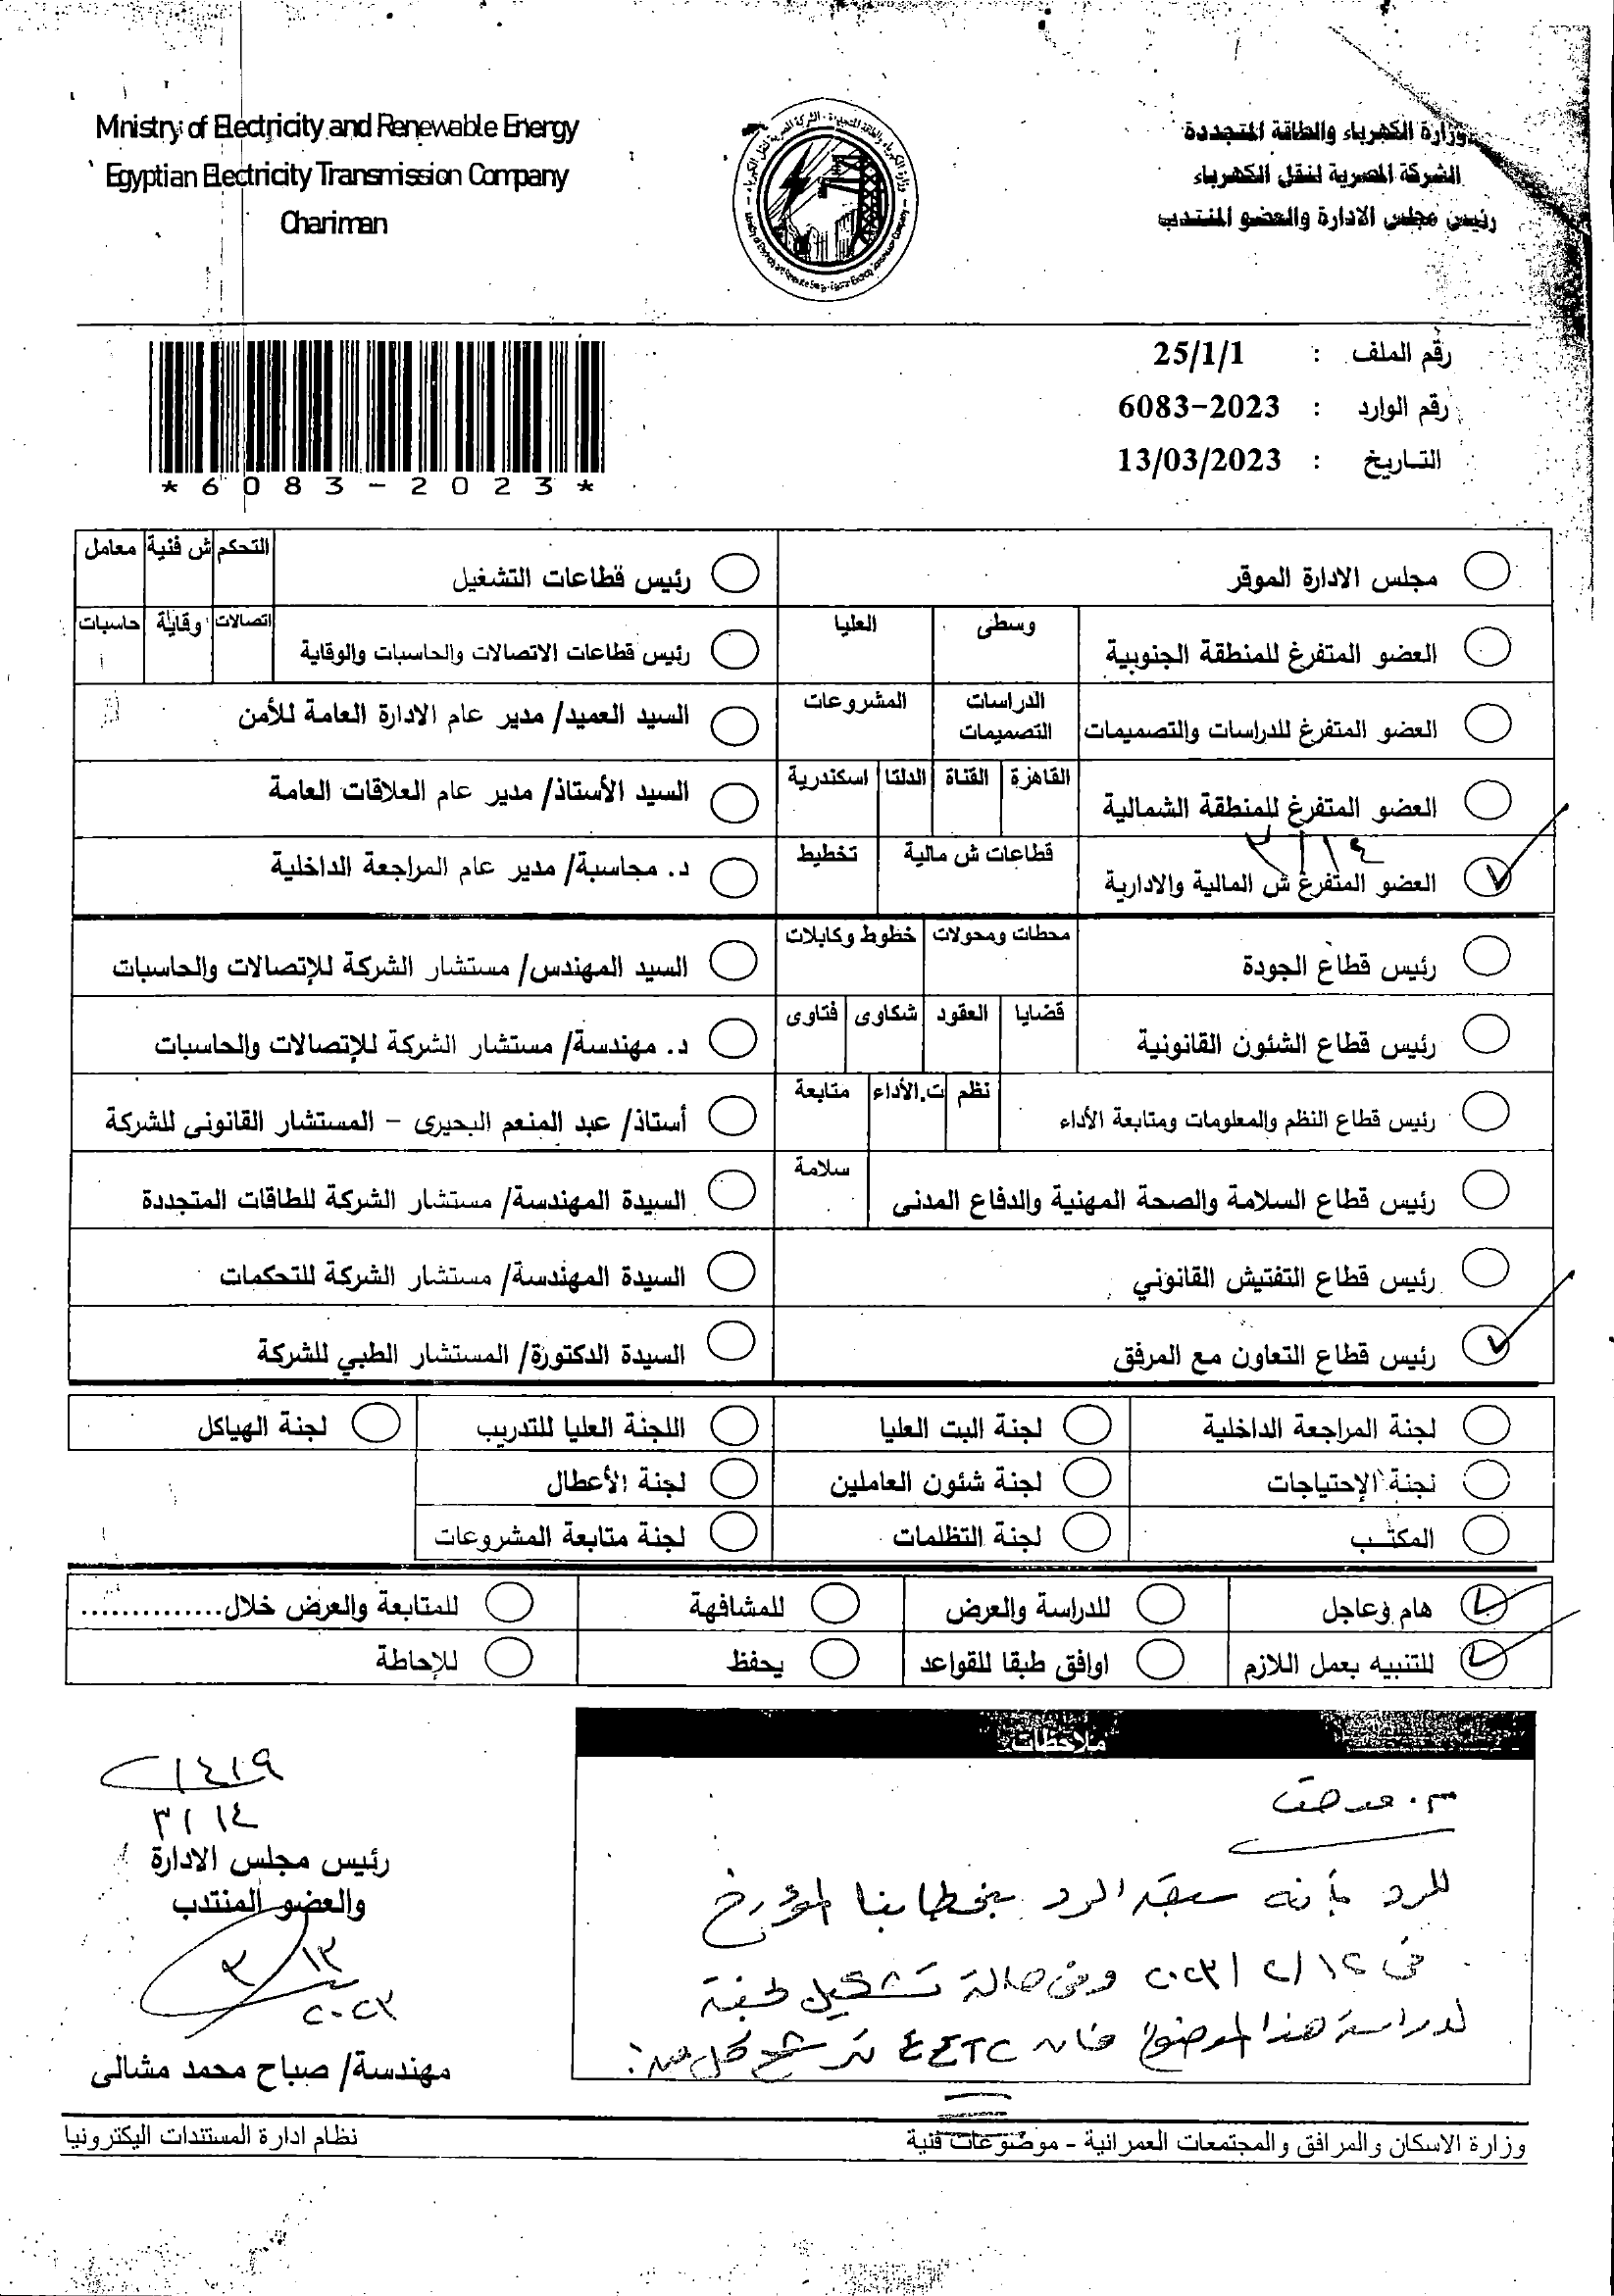 Ministry of Electricity and Renewable Energy
Egyptian Electricity Transmission Company
Chariman
وزارة الكهرباء والطاقة المتجددة
الشركة المصرية لنقل الكهرباء
رئيس مجلس الادارة والعضو المنتدب
رقم الملف : 25/1/1
رقم الوارد : 6083-2023
التاريخ : 13/03/2023
*6083-2023*
مجلس الادارة الموقر
رئيس قطاعات التشغيل
التحكم ش فنية معامل
العضو المتفرغ للمنطقة الجنوبية
وسطى العليا
رئيس قطاعات الاتصالات والحاسبات والوقاية
اتصالات وقاية حاسبات
العضو المتفرغ للدراسات والتصميمات
الدراسات التصميمات المشروعات
السيد العميد/ مدير عام الادارة العامة للأمن
العضو المتفرغ للمنطقة الشمالية
القاهرة القناة الدلتا اسكندرية
السيد الأستاذ/ مدير عام العلاقات العامة
٣/١٤
العضو المتفرغ ش المالية والادارية
قطاعات ش مالية تخطيط
د. محاسبة/ مدير عام المراجعة الداخلية
رئيس قطاع الجودة
محطات ومحولات خطوط وكابلات
السيد المهندس/ مستشار الشركة للإتصالات والحاسبات
رئيس قطاع الشئون القانونية
قضايا العقود شكاوى فتاوى
د. مهندسة/ مستشار الشركة للإتصالات والحاسبات
رئيس قطاع النظم والمعلومات ومتابعة الأداء
نظم ت.الأداء متابعة
أستاذ/ عبد المنعم البحيرى - المستشار القانونى للشركة
رئيس قطاع السلامة والصحة المهنية والدفاع المدنى
سلامة
السيدة المهندسة/ مستشار الشركة للطاقات المتجددة
رئيس قطاع التفتيش القانوني
السيدة المهندسة/ مستشار الشركة للتحكمات
رئيس قطاع التعاون مع المرفق
السيدة الدكتورة/ المستشار الطبي للشركة
لجنة المراجعة الداخلية لجنة البت العليا اللجنة العليا للتدريب لجنة الهياكل
لجنة الإحتياجات لجنة شئون العاملين لجنة الأعطال
المكتب لجنة التظلمات لجنة متابعة المشروعات
هام وعاجل للدراسة والعرض للمشافهة للمتابعة والعرض خلال..............
للتنبيه بعمل اللازم اوافق طبقا للقواعد يحفظ للإحاطة
ملاحظات
م. مدحت
للرد بأنه سبق الرد بخطابنا المؤرخ
فى ١٢/٢/٢٠٢٣ وفى حالة تشكيل لجنة
لدراسة هذا الموضوع فان ترشح كل من:
١٤١٩
٣/١٤
رئيس مجلس الادارة
والعضو المنتدب
٣/١٣
٢٠٢٣
مهندسة/ صباح محمد مشالى
وزارة الاسكان والمرافق والمجتمعات العمرانية - موضوعات فنية
نظام ادارة المستندات اليكترونيا